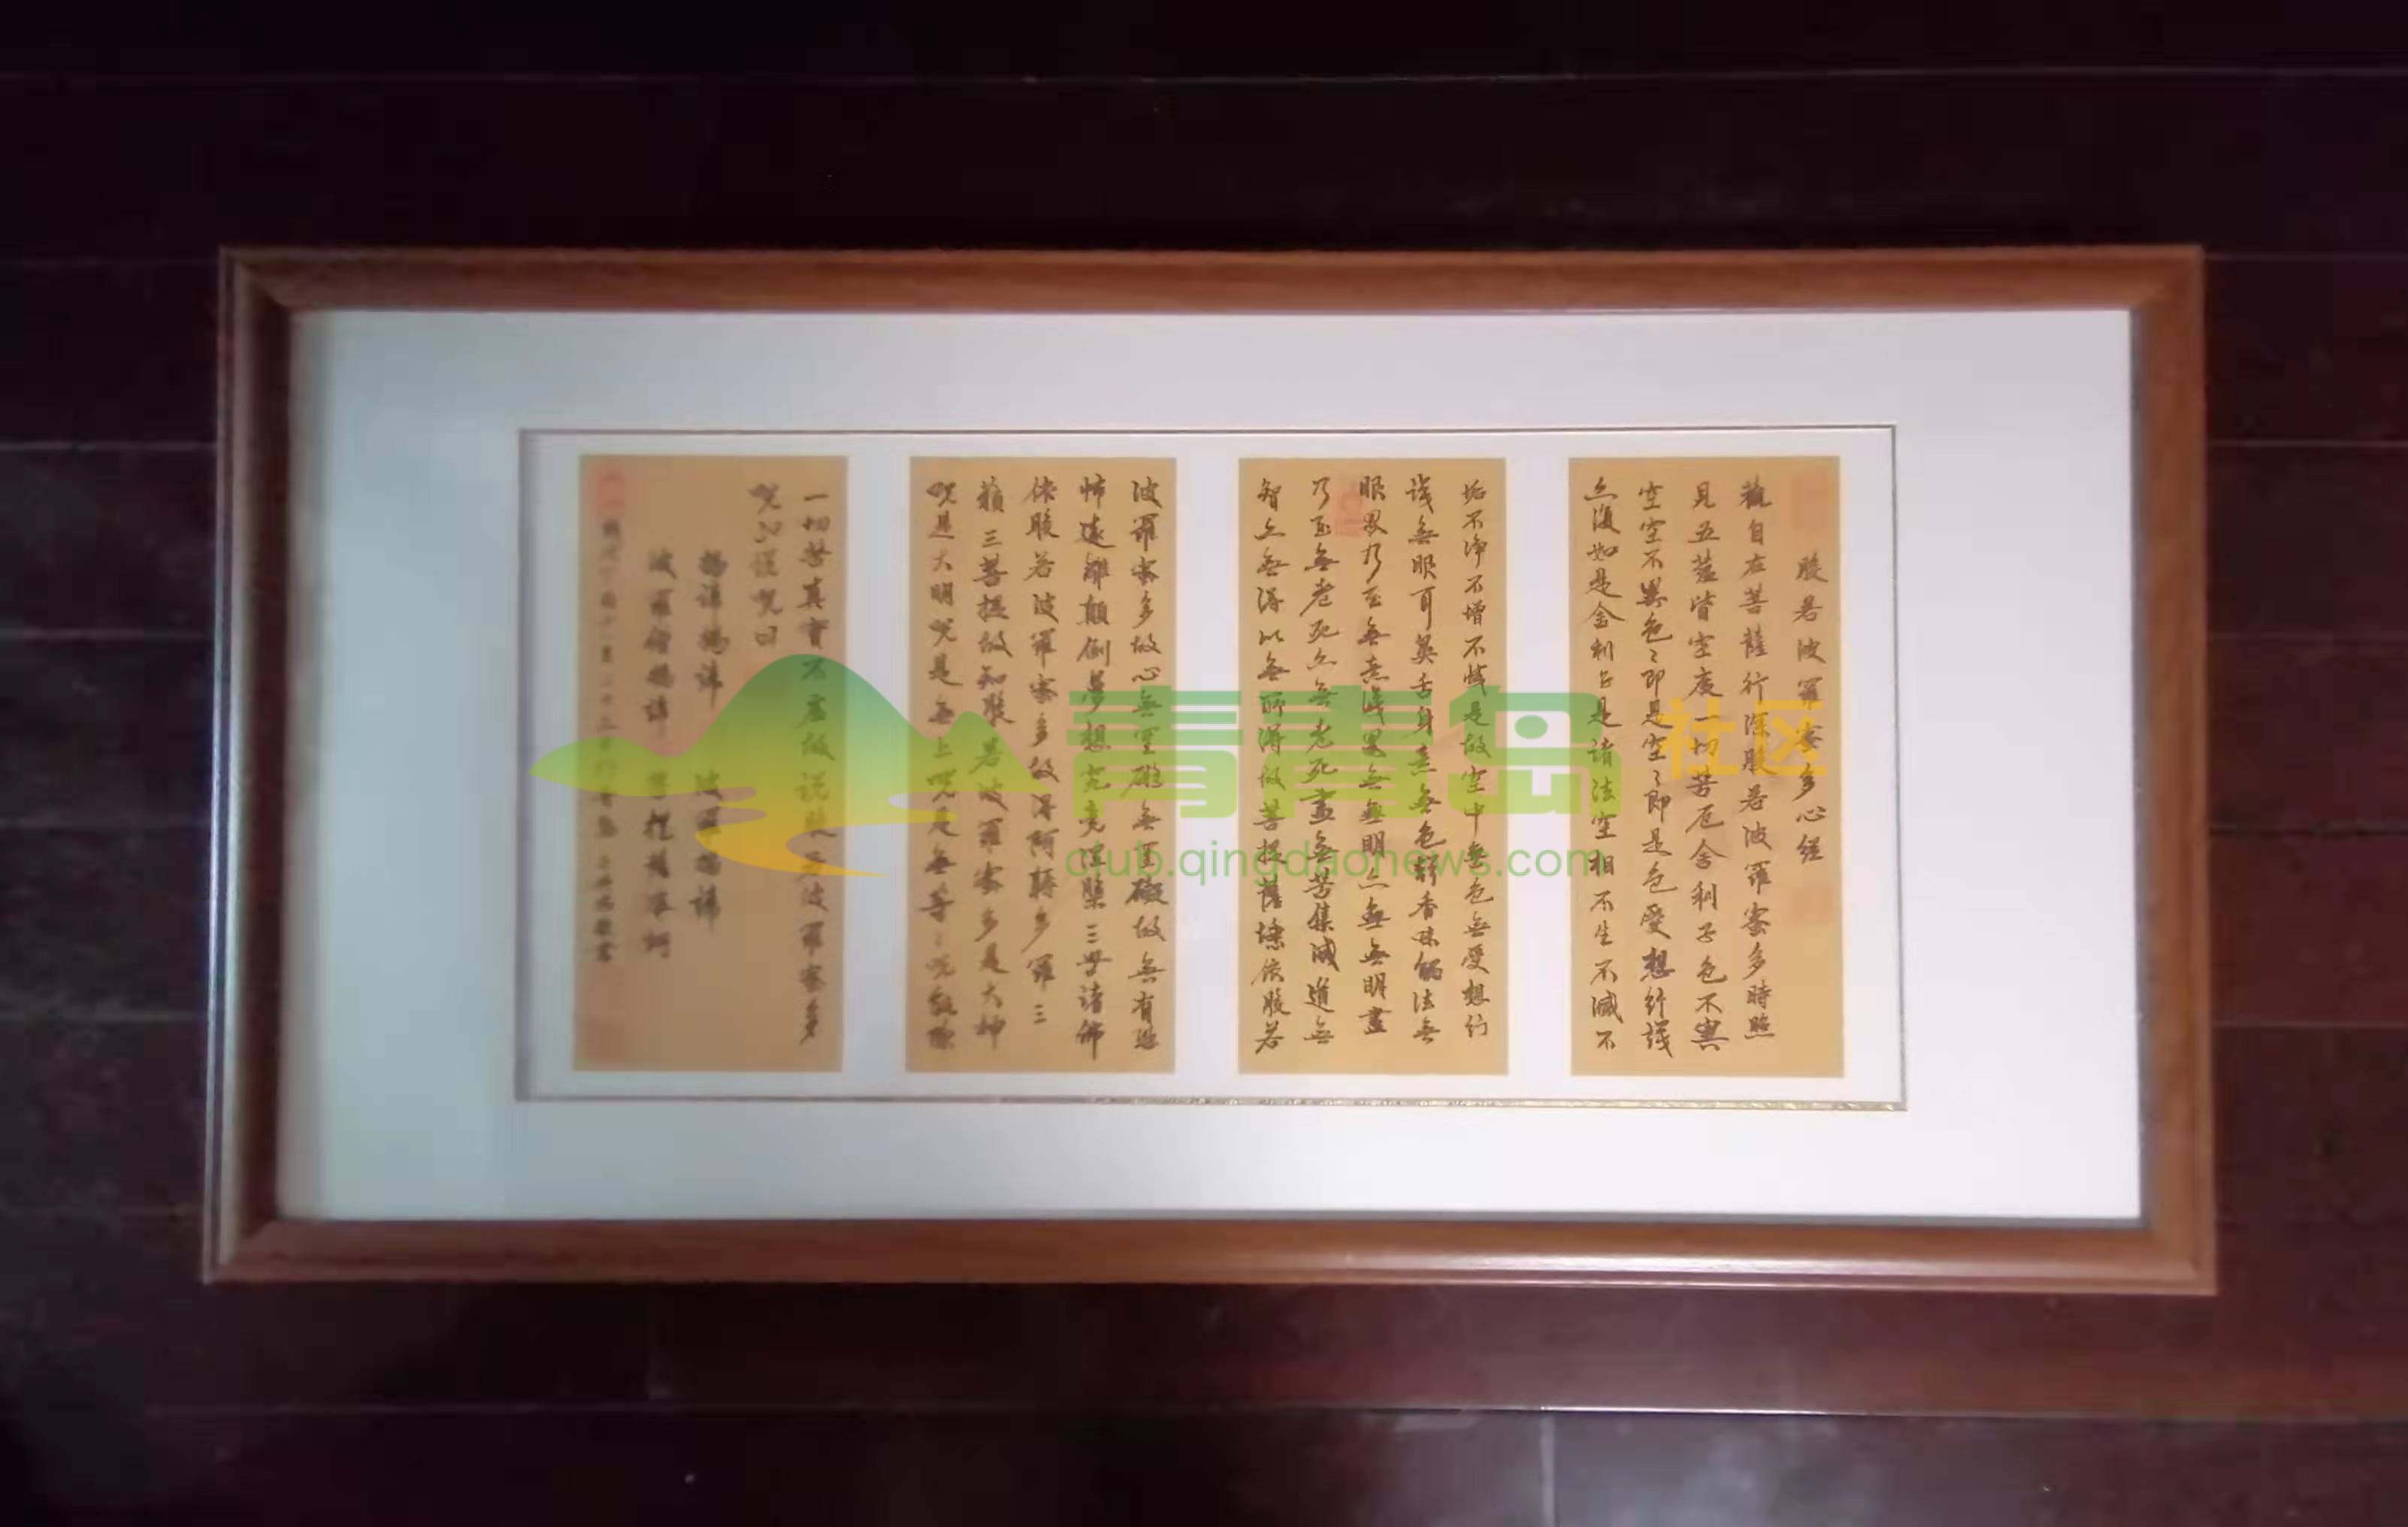 般若波羅蜜多心經
觀自在菩薩行深般若波羅蜜多時照
見五蘊皆空度一切苦厄舍利子色不異
空空不異色〻即是空〻即是色受想行識
亦復如是舍利子是諸法空相不生不滅不
垢不淨不增不減是故空中無色無受想行
識無眼耳鼻舌身意無色聲香味觸法無
眼界乃至無意識界無無明亦無無明盡
乃至無老死亦無老死盡無苦集滅道無
智亦無得以無所得故菩提薩埵依般若
波羅蜜多故心無罣礙無罣礙故無有恐
怖遠離顛倒夢想究竟涅槃三世諸佛
依般若波羅蜜多故得阿耨多羅三
藐三菩提故知般若波羅蜜多是大神
咒是大明咒是無上咒是無等〻咒能除
一切苦真實不虛故說般若波羅蜜多
咒即說咒曰
揭諦揭諦 波羅揭諦
波羅僧揭諦 菩提薩婆訶
青青岛
社区
club.qingdaonews.com